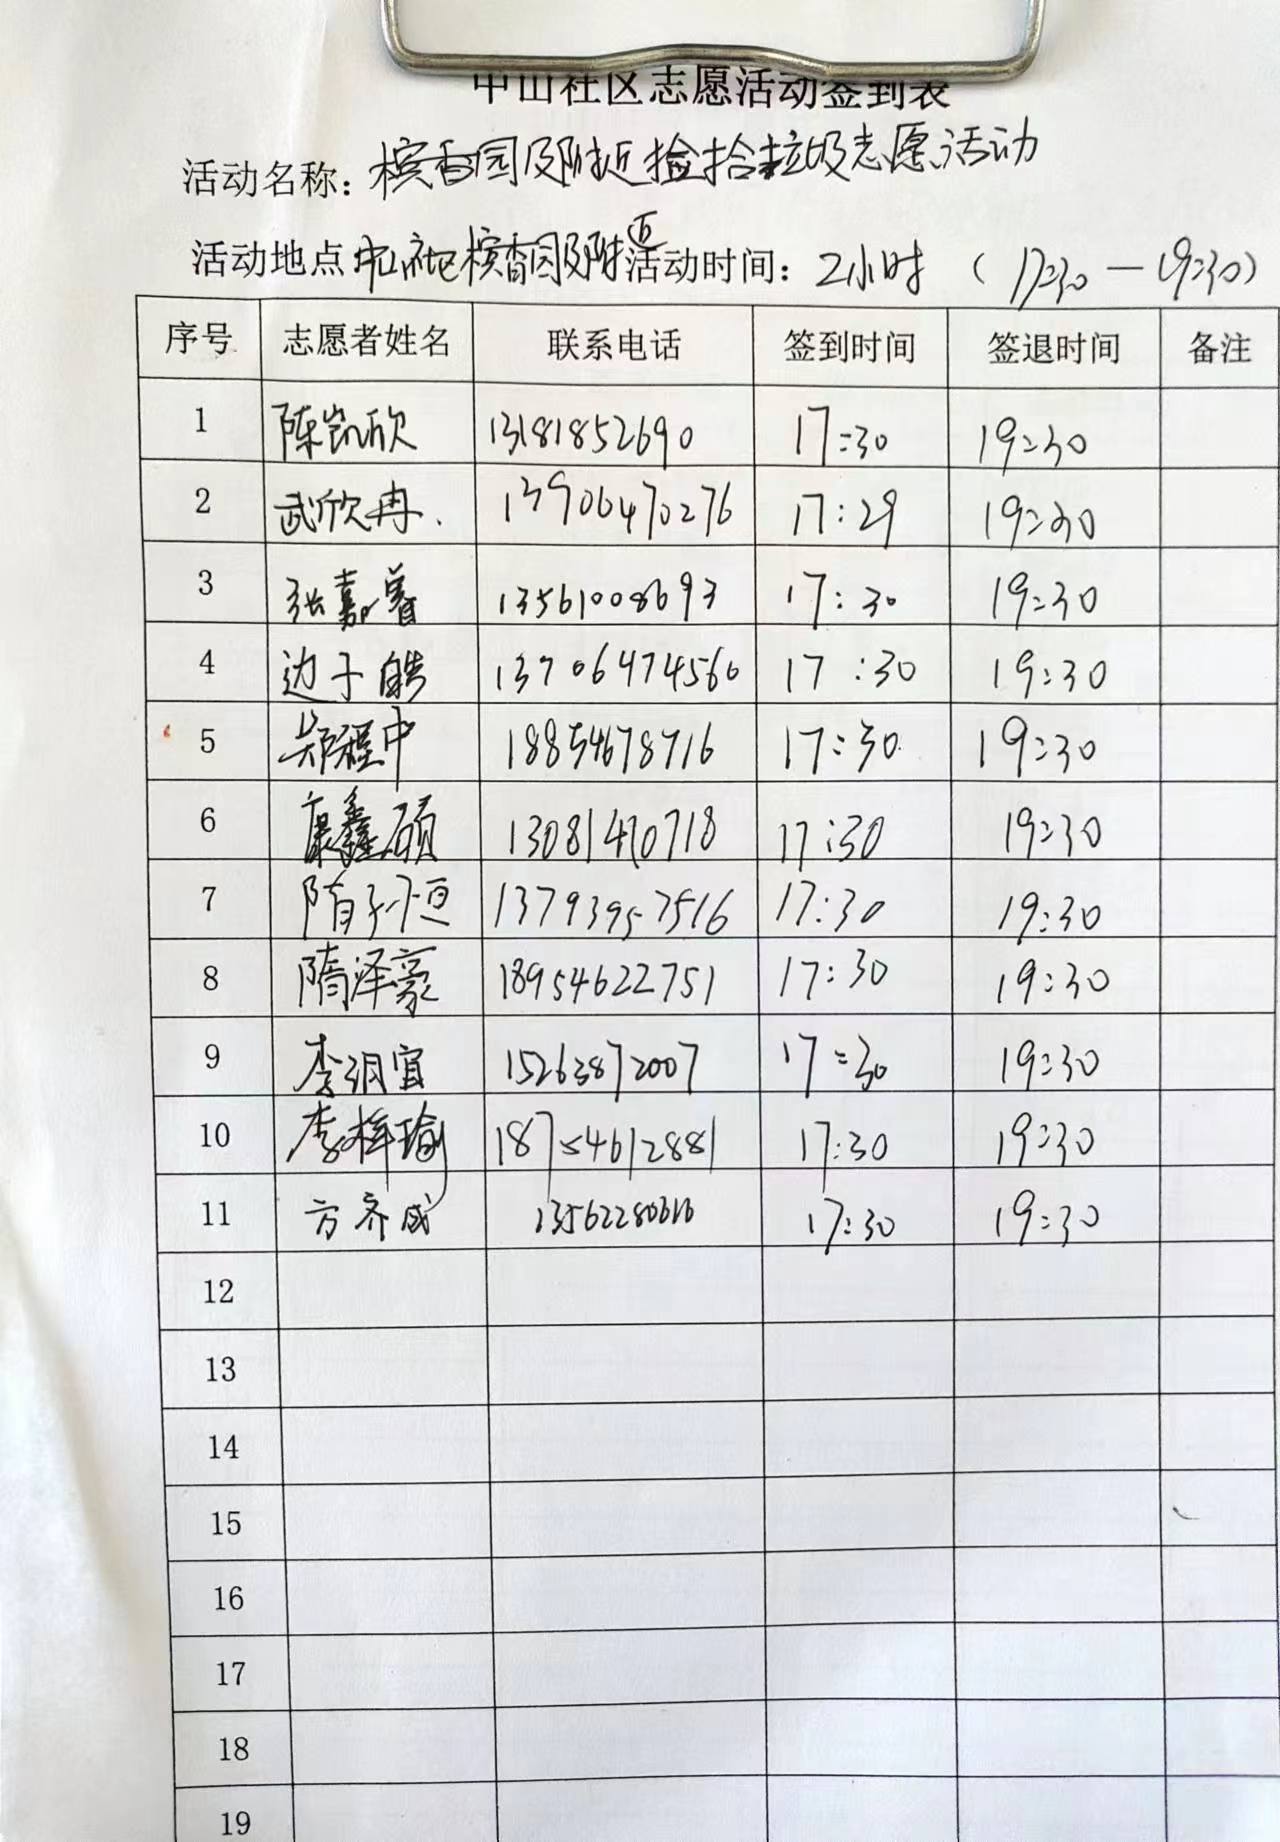 中山社区志愿活动签到表
活动名称：槟香园及附近捡拾垃圾志愿活动
活动地点 中山社区槟香园及附近 活动时间：2小时（17:30—19:30）
序号 志愿者姓名 联系电话 签到时间 签退时间 备注
1 陈凯欣 13181852690 17:30 19:30
2 武欣冉. 13906470276 17:29 19:30
3 张嘉睿 13561008693 17:30 19:30
4 边子皓 13706474560 17:30 19:30
5 郑程中 18854678716 17:30 19:30
6 康鑫硕 13081470718 17:30 19:30
7 隋子恒 13793957516 17:30 19:30
8 隋泽豪 18954622751 17:30 19:30
9 李润宜 15263872007 17:30 19:30
10 李梓瑜 18754612881 17:30 19:30
11 方齐成 17:30 19:30
12
13
14
15
16
17
18
19